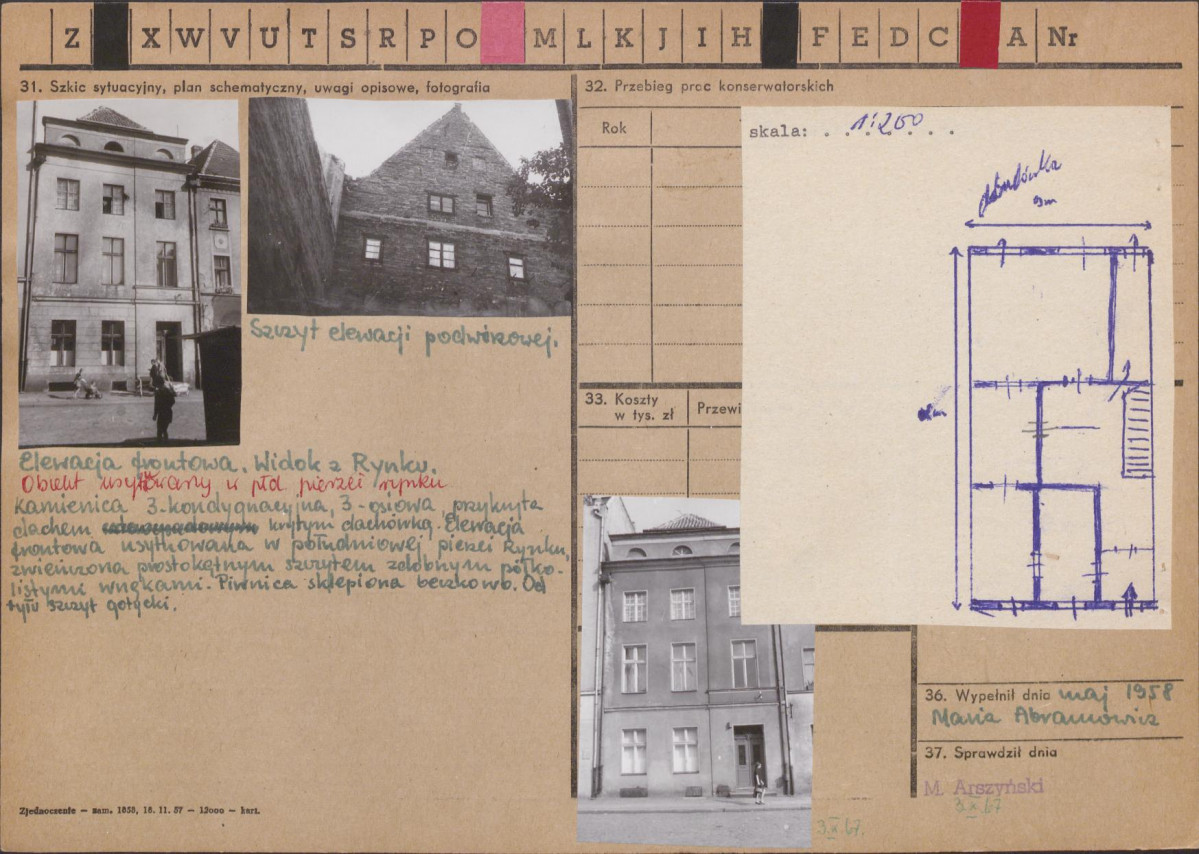 Z X W V U T S R P O M L K J I H F E D C A Nr
31. Szkic sytuacyjny, plan schematyczny, uwagi opisowe, fotografia
Szczyt elewacji podwórzowej.
Elewacja frontowa. Widok z Rynku.
Obiekt usytuowany w płd pierzei rynku
Kamienica 3-kondygnacyjna, 3-osiowa, przykryta
dachem krytym dachówką. Elewacja
frontowa usytuowana w południowej pierzei Rynku,
zwieńczona prostokątnym szczytem zdobnym półko-
listymi wnękami. Piwnica sklepiona beczkowo. Od
tyłu szczyt gotycki.
Zjednoczenie — zam. 1855, 18. 11. 57 — 12000 — kart.
32. Przebieg prac konserwatorskich
Rok
skala: 1:200
9m
33. Koszty
w tys. zł
Przewi
36. Wypełnił dnia maj 1958
Maria Abramowicz
37. Sprawdził dnia
M. Arszyński
3.X.67
3.X.67.